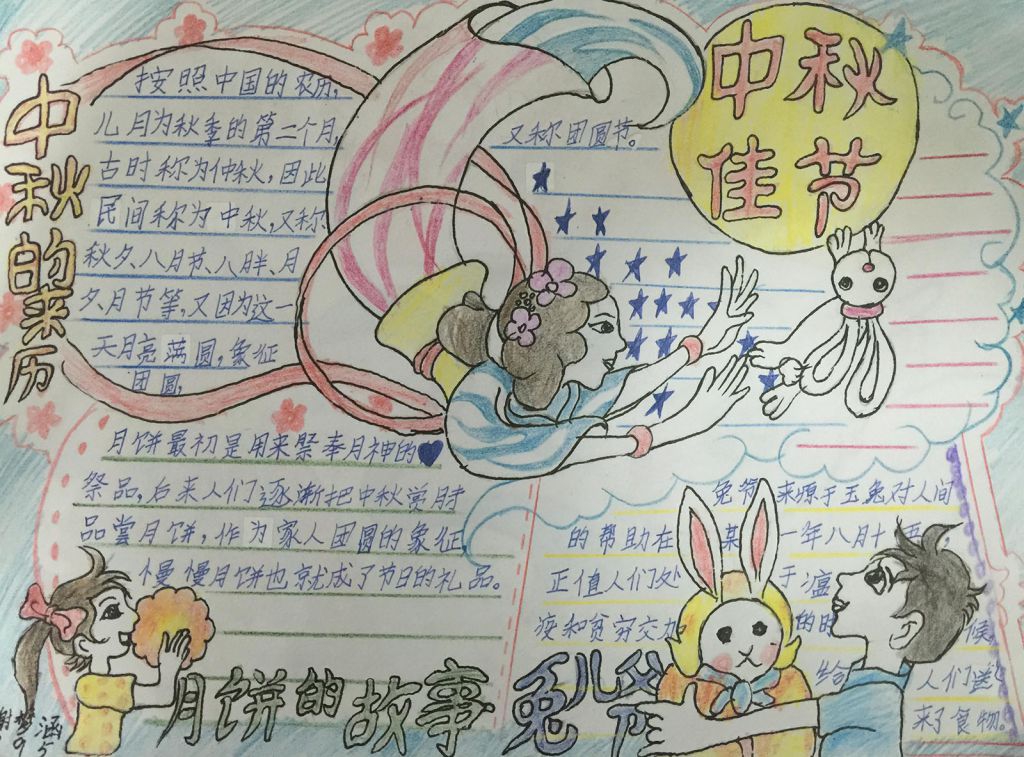 中秋佳节
中秋的来历
按照中国的农历，
八月为秋季的第二个月，
古时称为仲秋，因此
民间称为中秋，又称
秋夕、八月节、八月半、月
夕、月节等，又因为这一
天月亮满圆，象征
团圆，
又称团圆节。
月饼最初是用来祭奉月神的
祭品，后来人们逐渐把中秋赏月时
品尝月饼，作为家人团圆的象征
慢慢月饼也就成了节日的礼品。
月饼的故事
兔爷来源于玉兔对人间
的帮助在某一年八月十五
正值人们处于瘟
疫和贫穷交加的时候，
给人们送
来了食物。
兔儿爷
涵